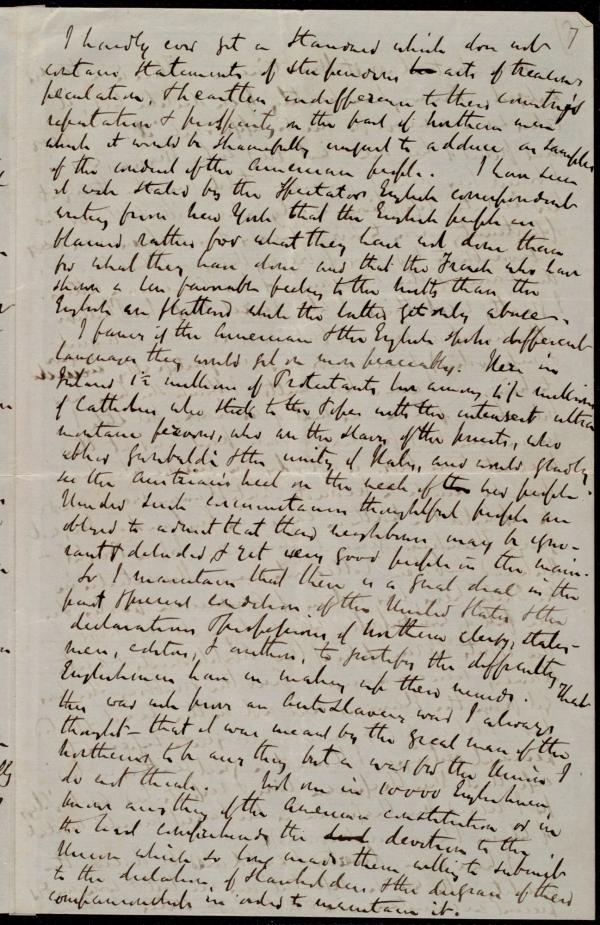 7
I hardly ever get a Standard which does not
contain statements of stupendous acts of treason
peculation, & heartless indifference to their country's
reputation & prosperity on the part of Northern men
which it would be shamefully unjust to adduce as samples
of the conduct of the American people. I have seen
it well stated by the Spectator's English correspondent
writing from New York that the English people are
blamed rather for what they have not done than
for what they have done and that the French who have
shown a less favourable feeling to the North than the
English are flattered while the latter get only abuse.
I fancy if the Americans & the English spoke different
languages they would get on more peaceably. Here in
Ireland 1½ millions of Protestants live among 4½ millions
of Catholics who stick to the Pope with the intensest ultra
montane fervour, who are the slaves of the priests, who
abhor Garibaldi & the unity of Italy, and would gladly
see the Austrian's heel on the neck of her people.
Under such circumstances thoughtful people are
obliged to admit that their neighbours may be igno-
rant & deluded & yet very good people in the main.
So I maintain that there is a great deal in the
past & present condition of the United States & the
declarations & professions of Northern clergy, states-
men, editors, & authors, to justify the difficulty that
Englishmen have in making up their minds. That
this was not from an antislavery war I always
thought - that it was meant by the great mass of the
Northerners to be any thing but a war for the Union I
do not think. Not one in 10000 Englishmen
know any thing of the American constitution or in
the least comprehends the devotion to the
Union which so long made them willing to submit
to the dictation of slaveholders & the disgrace of their
companionship in order to maintain it.